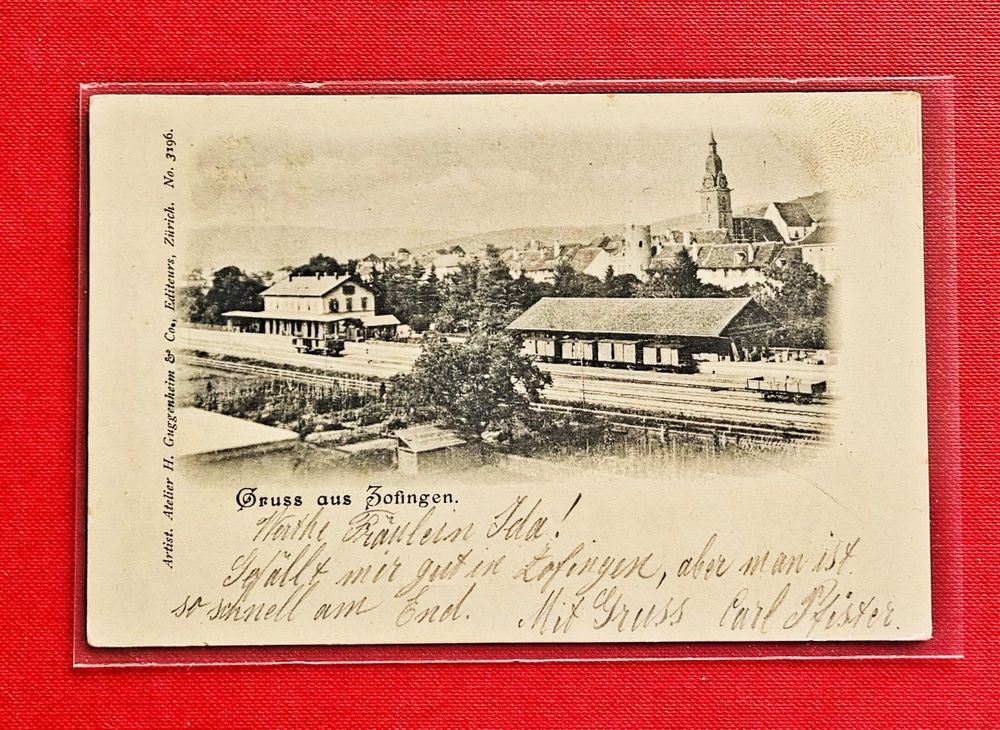 Artist. Atelier H. Guggenheim & Co., Editeurs, Zürich. No. 3196.
Gruss aus Zofingen.
Werthe Fräulein Ida!
Gefällt mir gut in Zofingen, aber man ist
so schnell am End. Mit Gruss Carl Pfister.